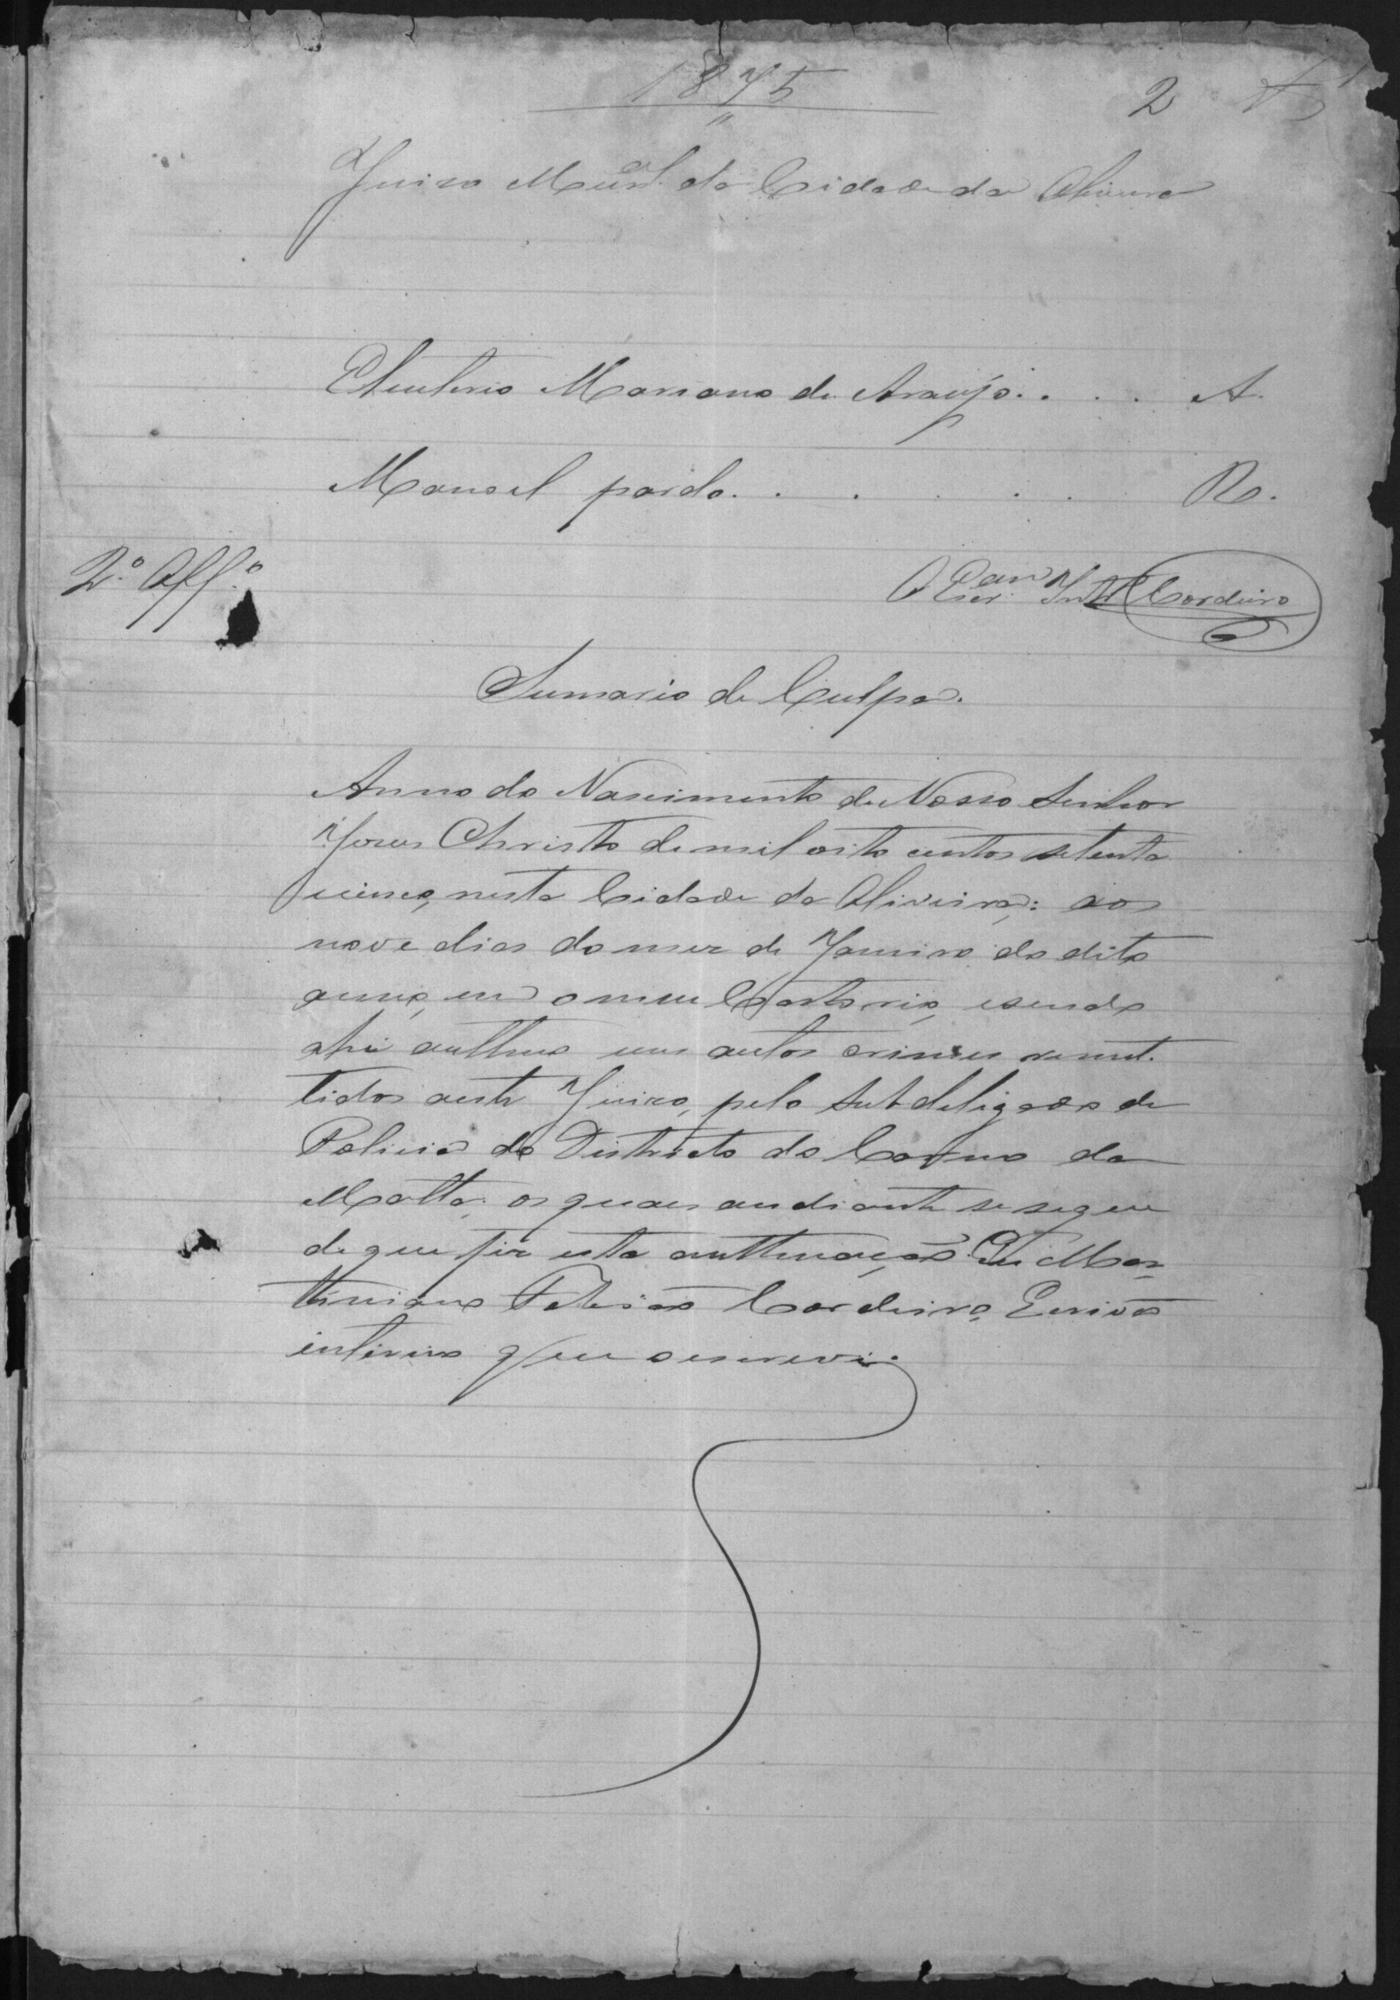 1875
2
Juizo Mun.al da Cidade da Oliveira
Eleuterio Mariano de Araujo. . . . A.
Manoel pardo. . . . . . R.
2.º Off.º
O Escr.am Int.º Cordeiro
Sumario de Culpa.
Anno do Nascimento de Nosso Senhor
Jesus Christo de mil oito centos setenta
cinco, nesta Cidade da Oliveira; aos
nove dias do mez de Janeiro do dito
anno, em o meu Cartorio, e sendo
ahi authuo uns autos crimes remet-
tidos a este Juizo, pelo Subdelegado de
Policia do Districto do Carmo da
Matta; os quaes ao diante se segue
de que fiz esta authuação. Eu Mar-
tiniano Cordeiro, Escrivão
interino que o escrevi.